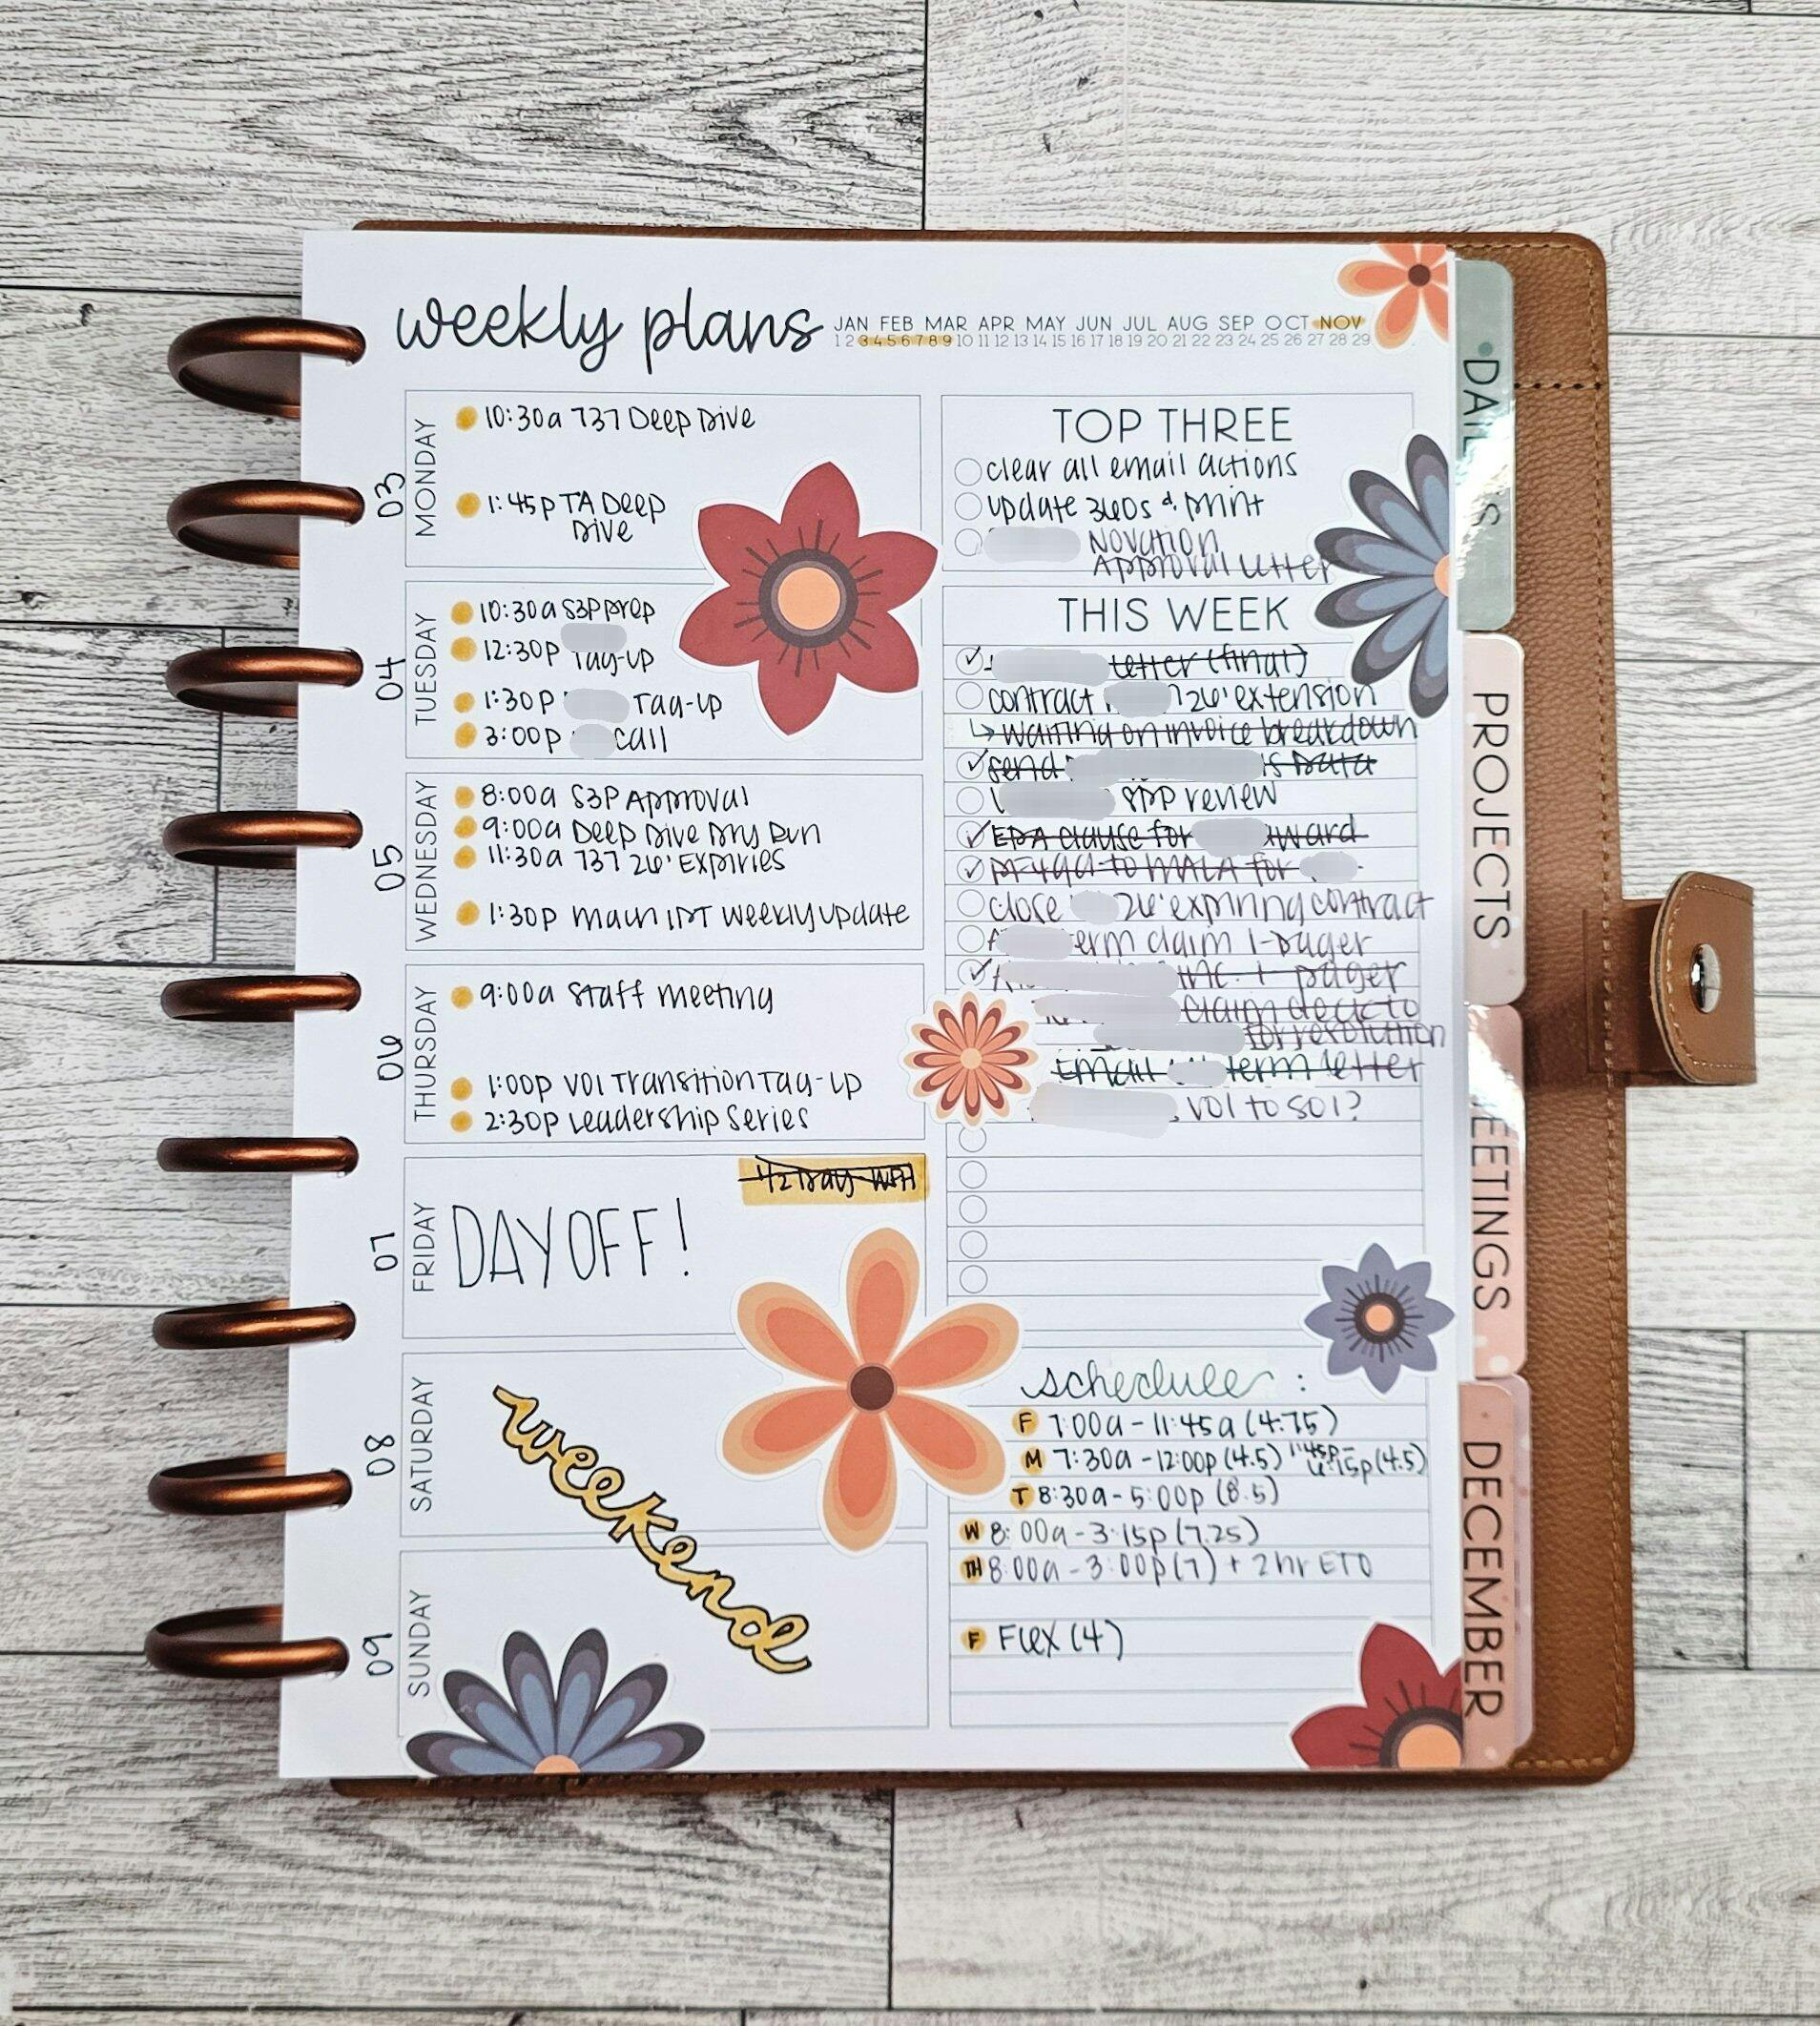 weekly plans
JAN FEB MAR APR MAY JUN JUL AUG SEP OCT NOV
1 2 3 4 5 6 7 8 9 10 11 12 13 14 15 16 17 18 19 20 21 22 23 24 25 26 27 28 29
03
MONDAY
10:30a 737 Deep Dive
1:45p TA Deep
Dive
04
TUESDAY
10:30a S3P prep
12:30p Tag-up
1:30p Tag-up
3:00p call
05
WEDNESDAY
8:00a S3P Approval
9:00a Deep Dive Dry Run
11:30a 737 26' Expiries
1:30p Main IPT weekly update
06
THURSDAY
9:00a Staff meeting
1:00p V01 Transition Tag-up
2:30p Leadership Series
07
FRIDAY
1/2 Day WFH
DAY OFF!
08
SATURDAY
weekend
09
SUNDAY
TOP THREE
clear all email actions
update 360s & print
Novation
Approval Letter
THIS WEEK
letter (final)
contract 26' extension
↳ waiting on invoice breakdown
send Data
review
EPA clause for award
to for
close 26' expiring contract
term claim 1-pager
1 pager
claim deck to
for resolution
Email term letter
V01 to S01?
schedule:
F 7:00a - 11:45a (4.75)
M 7:30a - 12:00p (4.5) 1:45p - 6:15p (4.5)
T 8:30a - 5:00p (8.5)
W 8:00a - 3:15p (7.25)
TH 8:00a - 3:00p (7) + 2 hr ETO
F Flex (4)
PROJECTS
DECEMBER